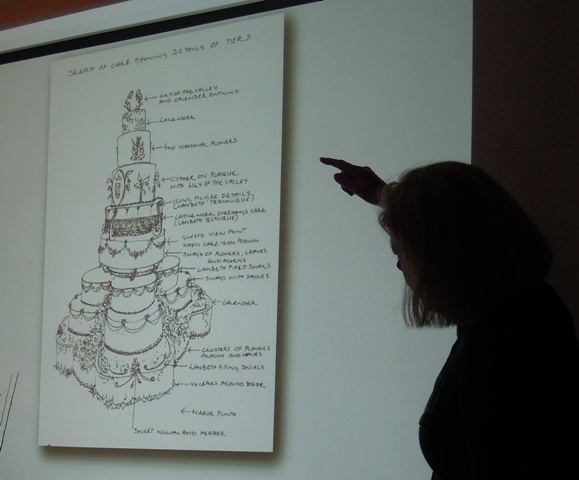 SKETCH OF CAKE SHOWING DETAILS OF TIERS.
LILY OF THE VALLEY
AND LAVENDER ENTWINED
LACEWORK
NATIONAL FLOWERS
CYPHER ON PLAQUE
WITH LILY OF THE VALLEY
ICING FILIGREE DETAILS
(LAMBETH TECHNIQUE)
LATTICE WORK, OVERHANGS CAKE
(LAMBETH TECHNIQUE)
GUESTS VIEW POINT
WHEN CAKE IS ON PODIUM
SWAGS OF FLOWERS, LEAVES
AND ACORNS
LAMBETH PIPED SWAGS
SWAGS WITH DAISIES
LACEWORK
CLUSTERS OF FLOWERS
ACORNS AND LEAVES
LAMBETH PIPING, SWIRLS
IVY LEAVES AROUND BASE
MIRROR PLINTH
SWEET WILLIAM AND HEATHER